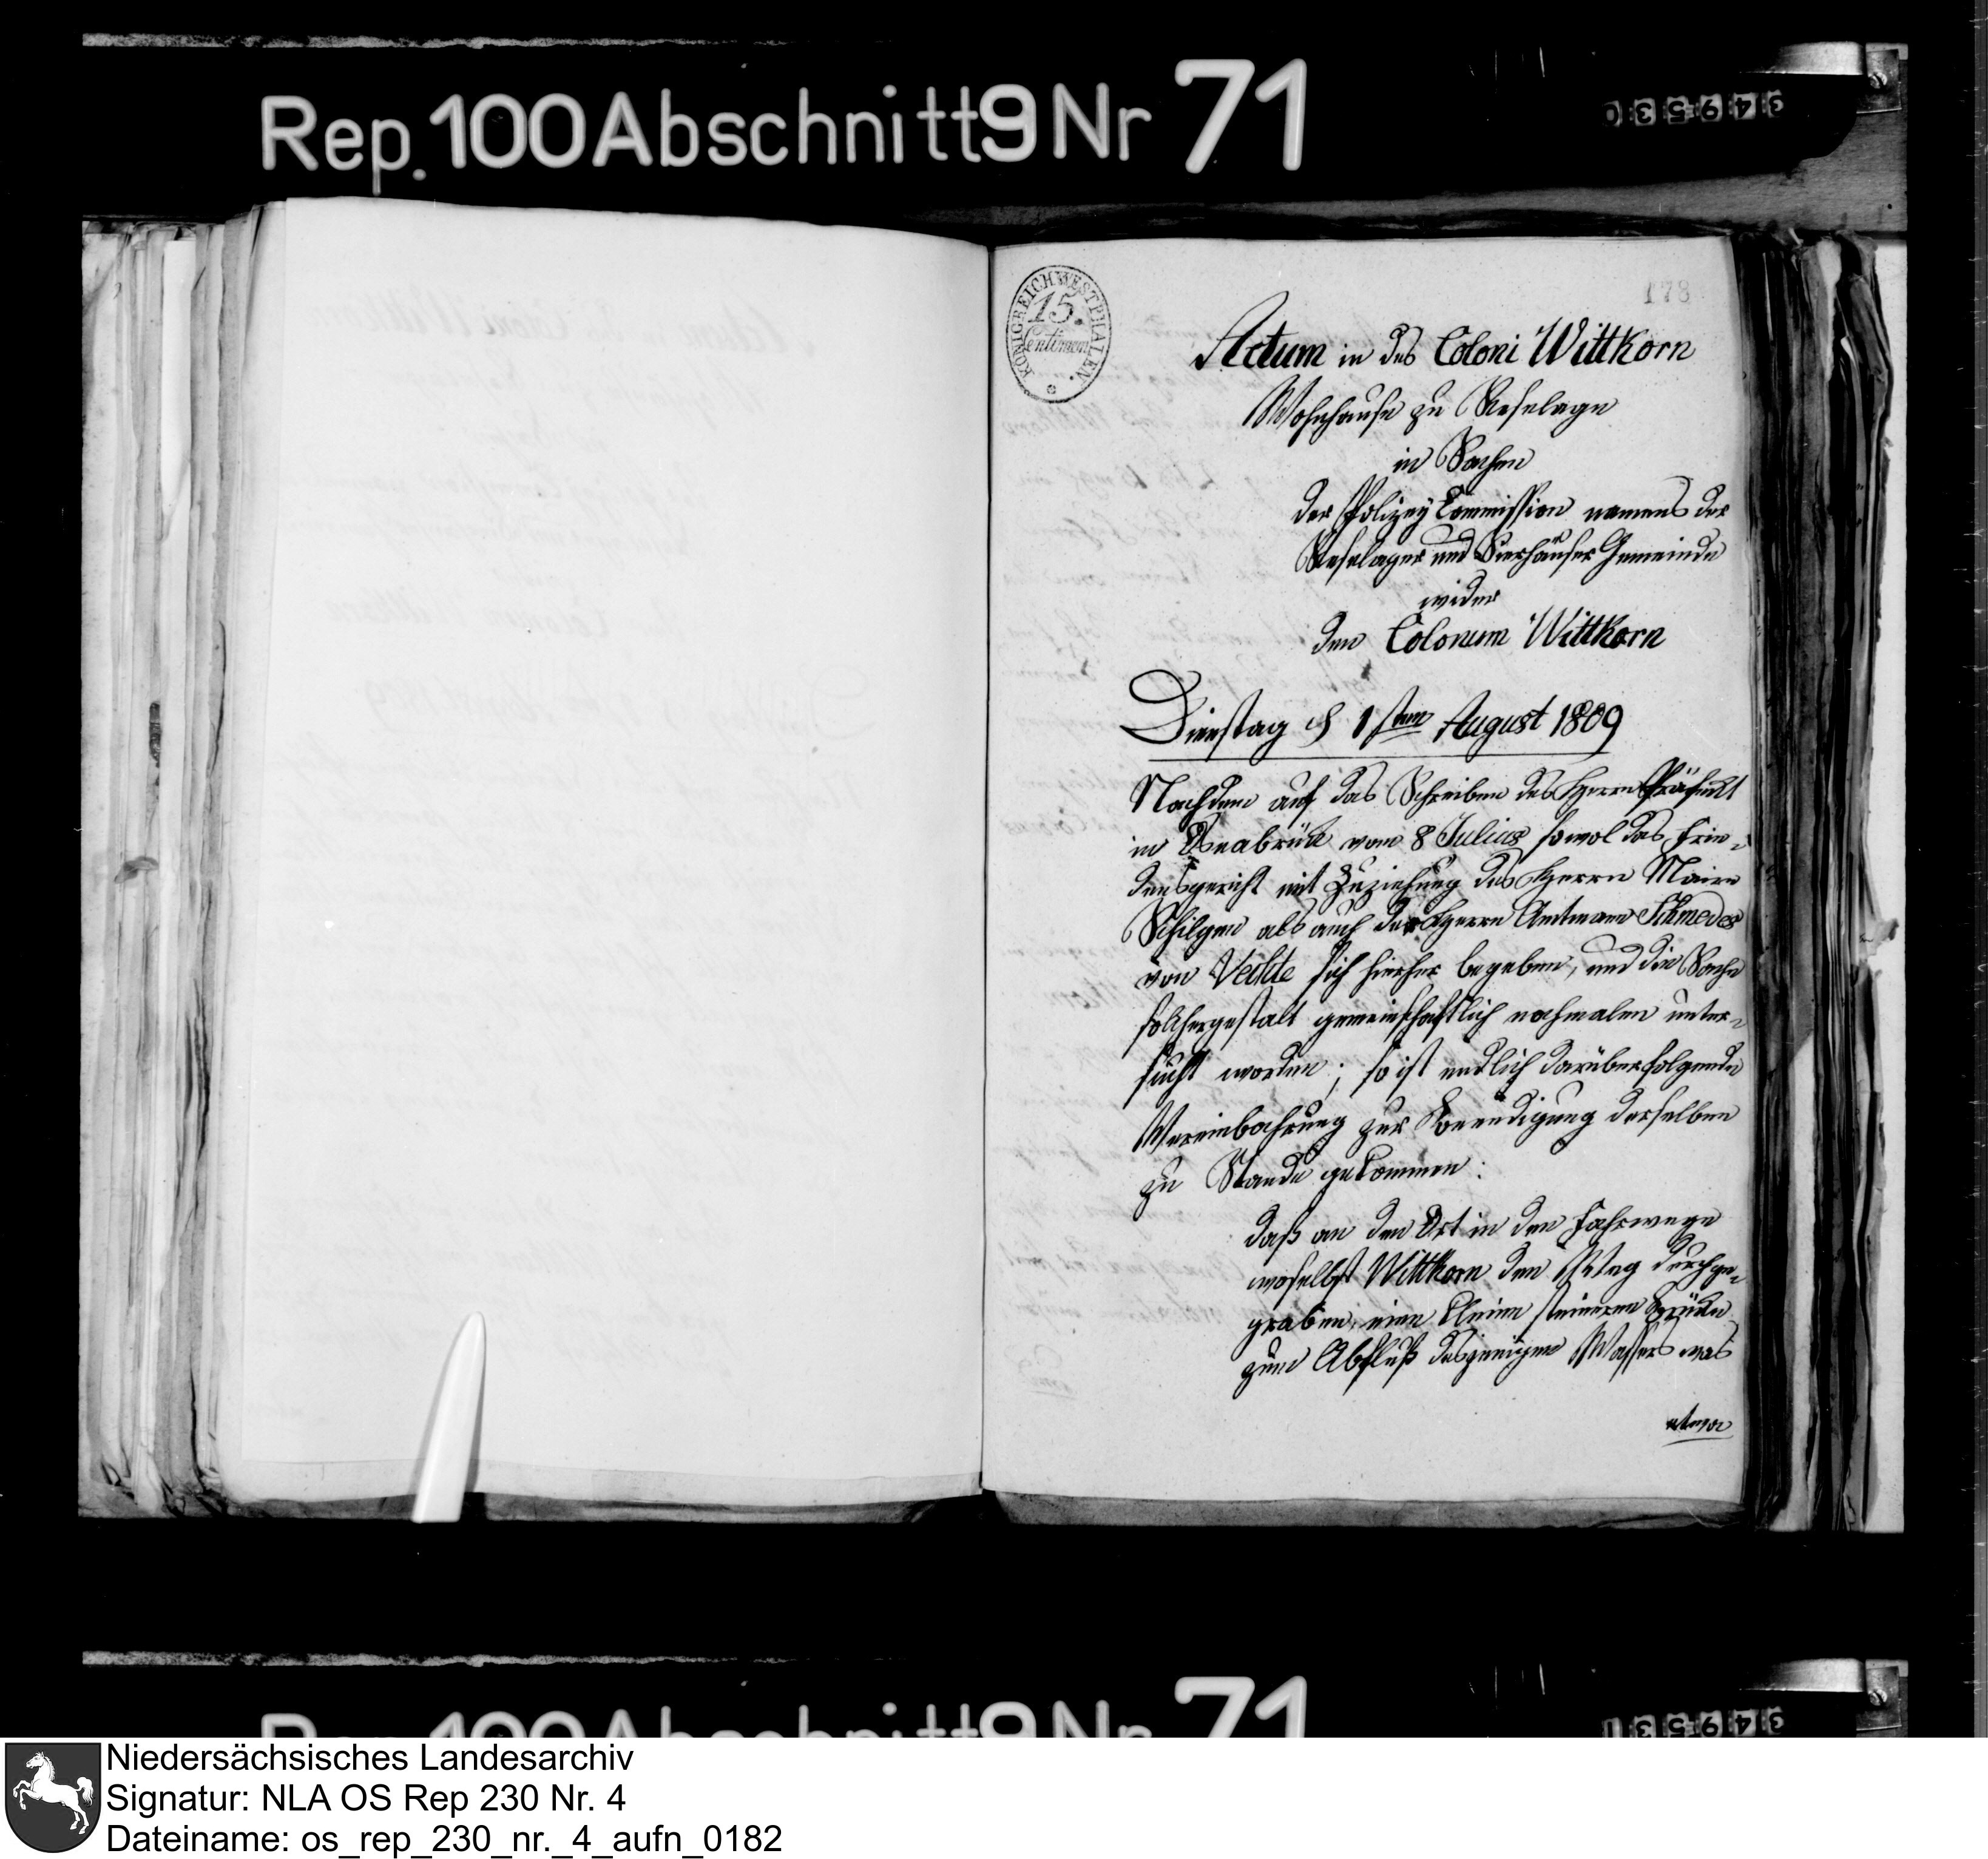 Rep. 100 Abschnitt 9 Nr 71
349530
KÖNIGREICH WESTPHALEN.
15.
Centimen
178
Actum in des Coloni Wittkorn
Wohnhause zu Reselage
in Sachen
der Polizey Commission namens der
Reselager und Sierhäuser Gemeinde
wider
den Colonum Wittkorn
Dienstag d 1sten August 1809
Nachdem auf das Schreiben des Herrn Präfeckt
in Osnabrück vom 8 Julius sowol das Frie-
densgericht mit Zuziehung des Herrn Maire
Schilgen als auch der Herrn Amtmann Schmedes
von Vechte sich hierher begeben, und die Sache
solchergestalt gemeinschaftlich nochmalen unter-
sucht worden; so ist endlich darüber folgende
Vereinbahrung zur Beendigung derselben
zu Stande gekommen:
daß an den Ort in den Fahrwege
woselbst Wittkorn den Weg durchge-
graben, eine kleine steinerne Brücke
zum Abfluß desjenigen Wassers was
etwa
Rep. 100 Abschnitt 9 Nr 71
349531
Niedersächsisches Landesarchiv
Signatur: NLA OS Rep 230 Nr. 4
Dateiname: os_rep_230_nr._4_aufn_0182